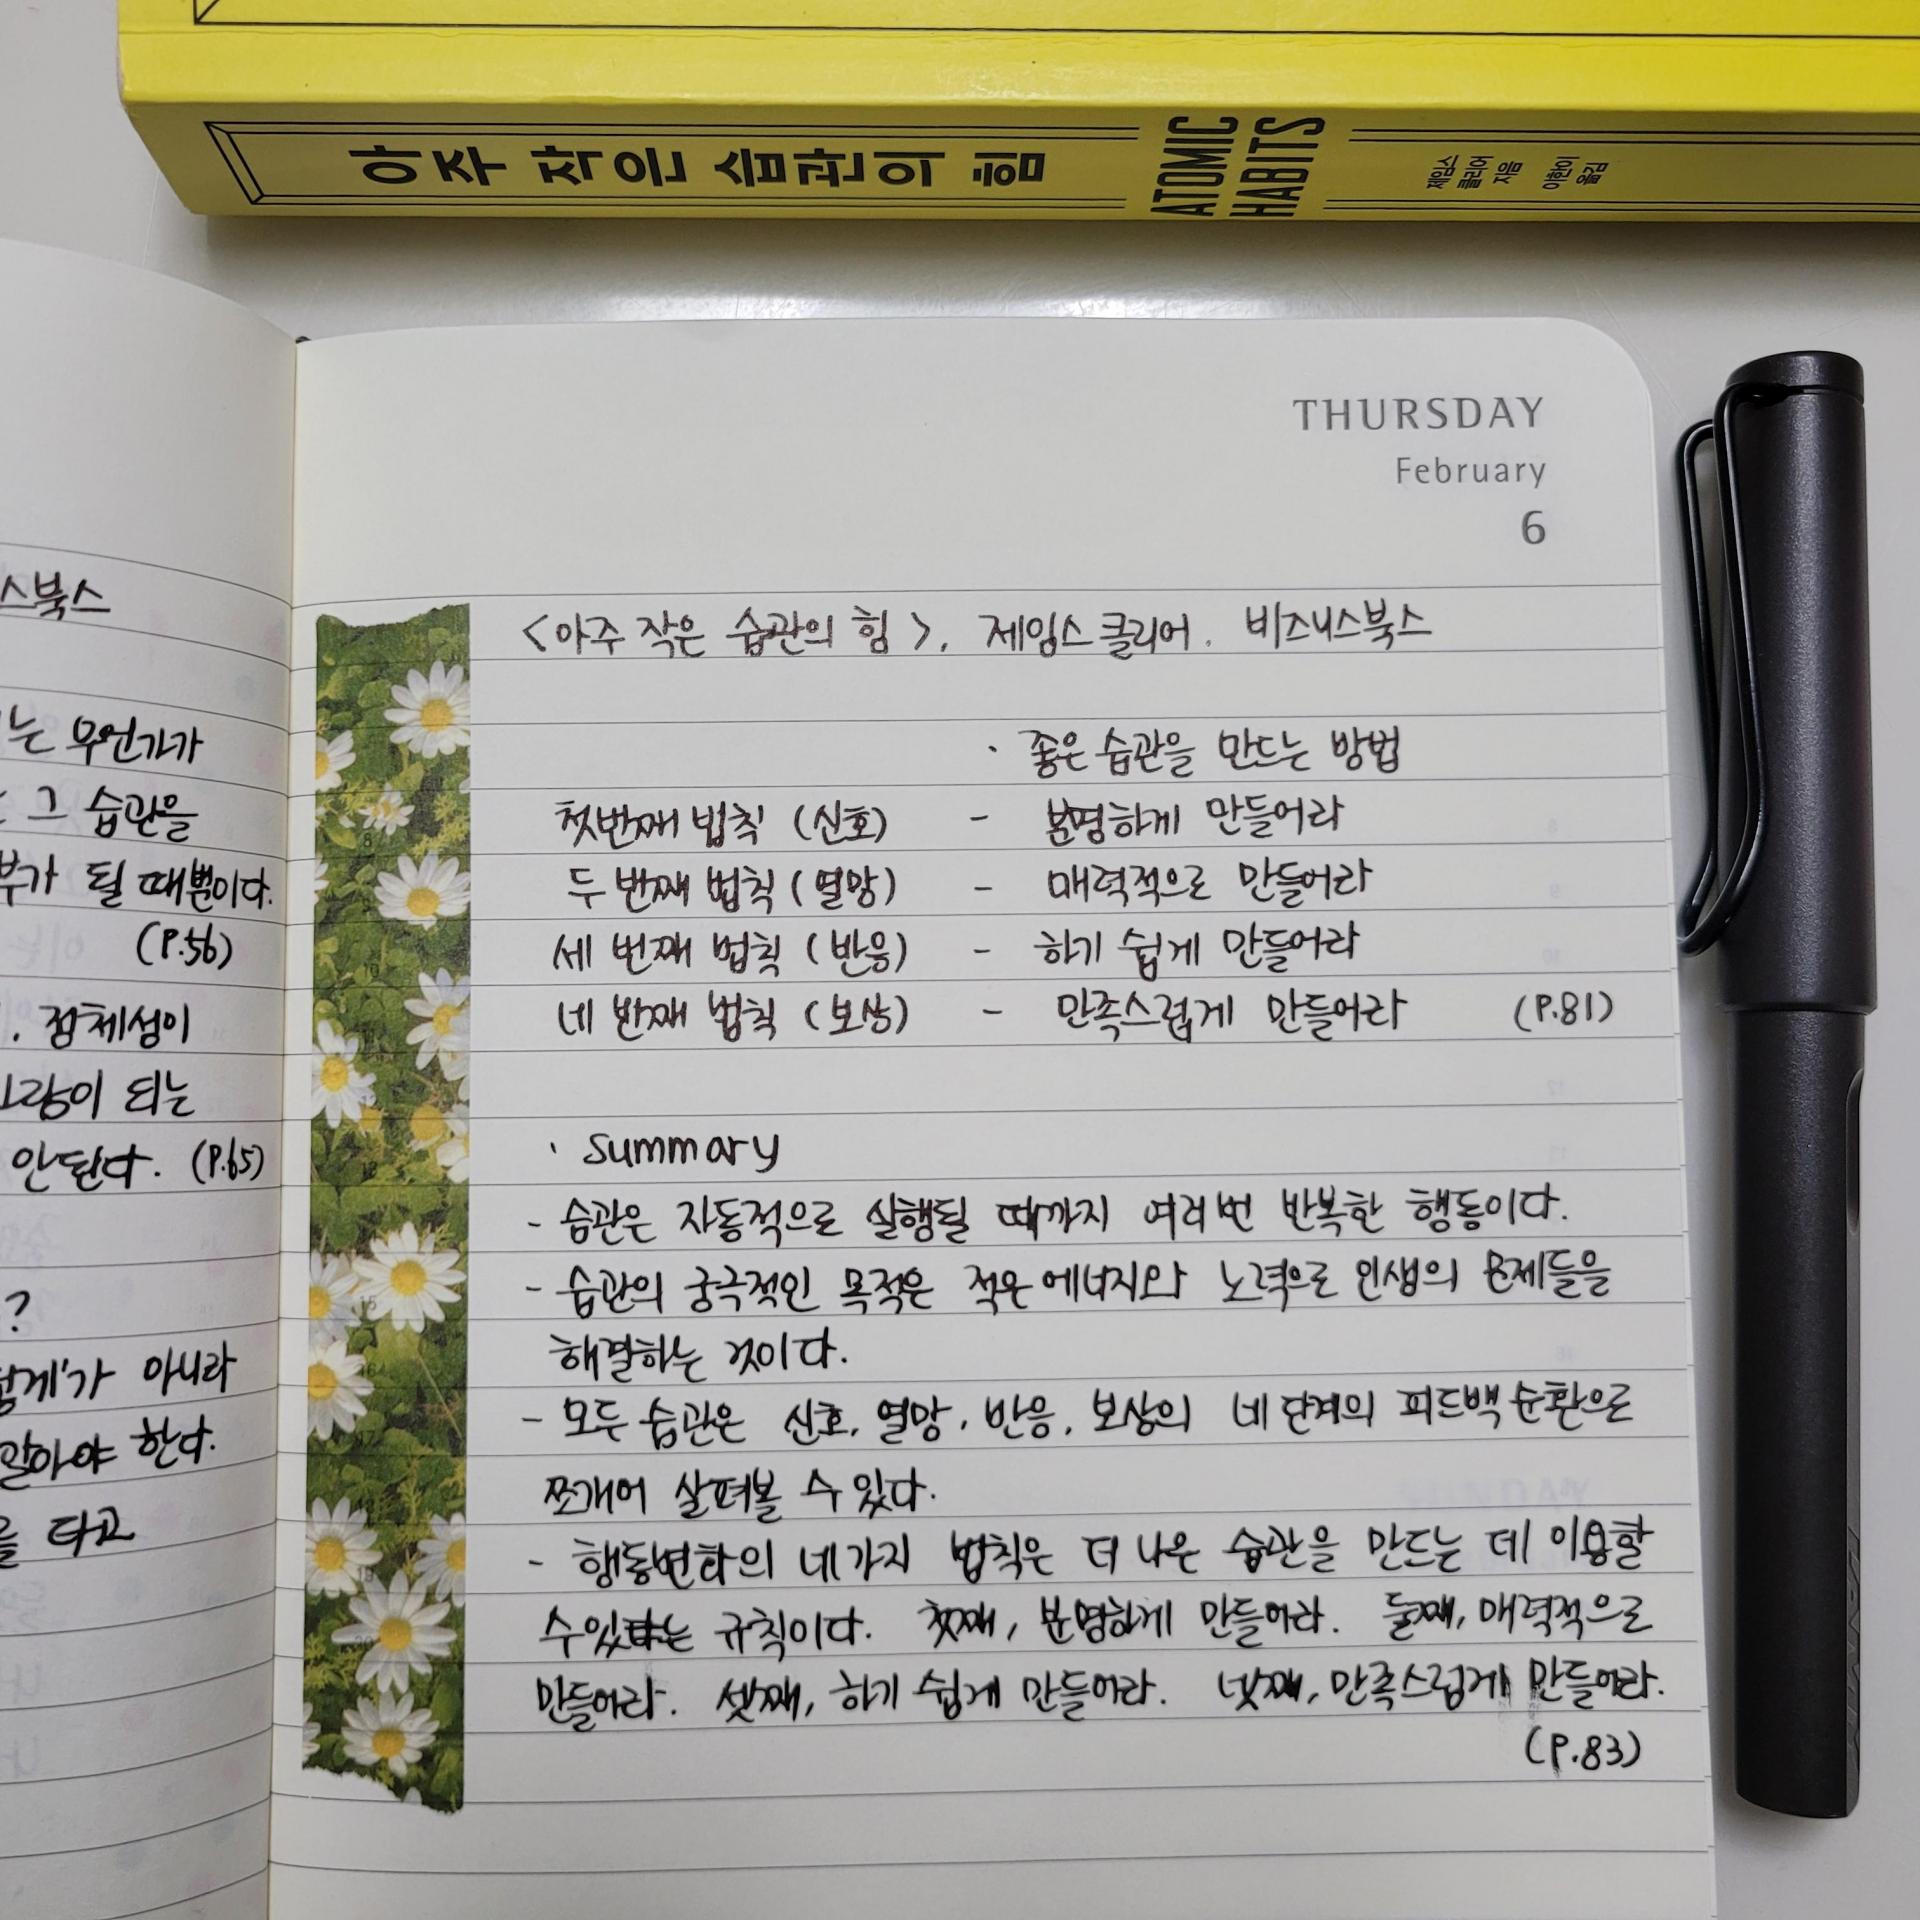 아주 작은 습관의 힘
ATOMIC
HABITS
제임스
클리어
지음
이한이
옮김
스북스
는 무언가가
그 습관을
부가 될 때뿐이다.
(P.56)
. 정체성이
이 되는
안된다. (P.65)
?
게'가 아니라
알아야 한다.
를 타고
THURSDAY
February
6
<아주 작은 습관의 힘>, 제임스 클리어. 비즈니스북스
· 좋은 습관을 만드는 방법
첫번째 법칙 (신호) - 분명하게 만들어라
두 번째 법칙 (열망) - 매력적으로 만들어라
세 번째 법칙 (반응) - 하기 쉽게 만들어라
네 번째 법칙 (보상) - 만족스럽게 만들어라 (P.81)
· summary
- 습관은 자동적으로 실행될 때까지 여러번 반복한 행동이다.
- 습관의 궁극적인 목적은 적은 에너지와 노력으로 인생의 문제들을
해결하는 것이다.
- 모두 습관은 신호, 열망, 반응, 보상의 네 단계의 피드백 순환으로
쪼개어 살펴볼 수 있다.
- 행동변화의 네가지 법칙은 더 나은 습관을 만드는 데 이용할
수있다는 규칙이다. 첫째, 분명하게 만들어라. 둘째, 매력적으로
만들어라. 셋째, 하기 쉽게 만들어라. 넷째, 만족스럽게 만들어라.
(P.83)